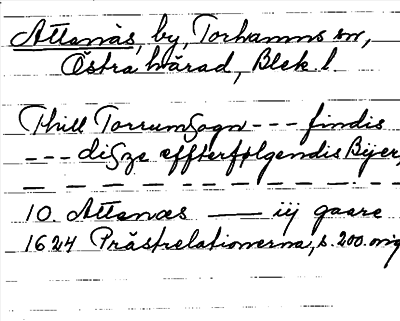 Attanäs, by, Torhamns sn,
Östra härad, Blek. l.
Thill Torrumsogn --- findis
--- disze effterfølgendis Byer,
— — — — — — — — —
10 Attanæs — iij gaare
1624 Prästrelationerna, s. 200. orig